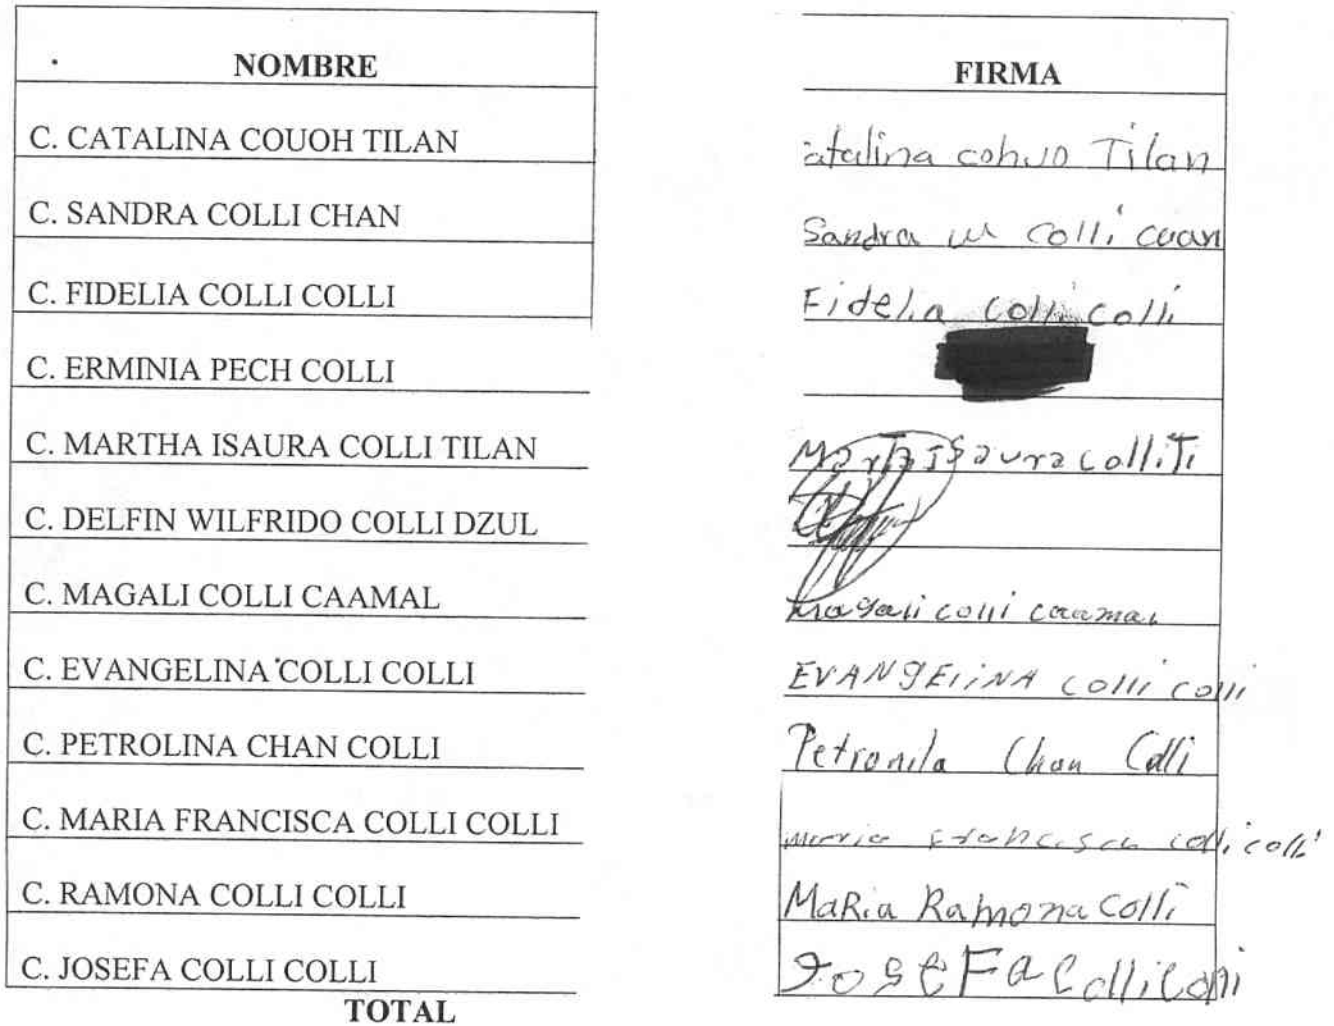 NOMBRE FIRMA
C. CATALINA COUOH TILAN atalina cohuo Tilan
C. SANDRA COLLI CHAN Sandra M Colli
C. FIDELIA COLLI COLLI Fidelia colli colli
C. ERMINIA PECH COLLI
C. MARTHA ISAURA COLLI TILAN Marta Isaura colli Ti
C. DELFIN WILFRIDO COLLI DZUL
C. MAGALI COLLI CAAMAL magali colli caamal
C. EVANGELINA COLLI COLLI EVANgEliNA colli colli
C. PETROLINA CHAN COLLI Petronila Chan Colli
C. MARIA FRANCISCA COLLI COLLI maria francisca colli colli
C. RAMONA COLLI COLLI MaRia Ramona Colli
C. JOSEFA COLLI COLLI JoseFa Colli Colli
TOTAL